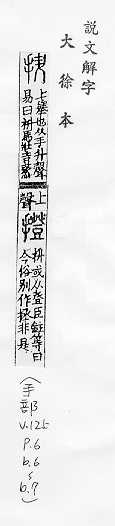 説文解字
大徐本
抍
上舉也从手升聲
易曰抍馬壯吉蒸
上
聲
撜
抍或从登臣鉉等曰
今俗別作拯非是
(手部
v.12b
p.6
b.6
s
b.7)